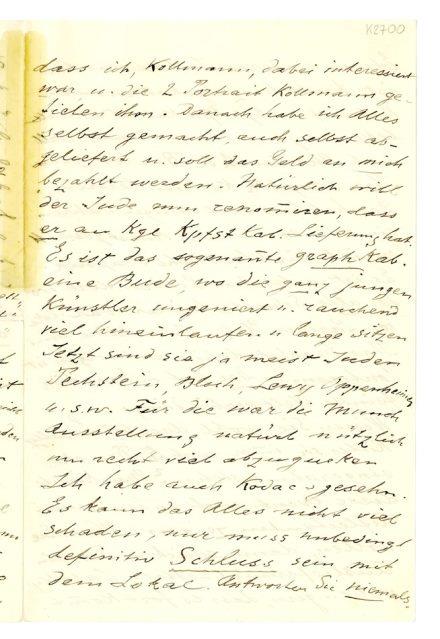 K2700
dass ich, Kollmann, dabei interessiert
war u. die 2 Portrait Kollmann ge-
fielen ihm. Danach habe ich Alles
selbst gemacht, auch selbst ab-
geliefert u. soll das Geld an mich
bezahlt werden. Natürlich will
der Jude nun renomiren, dass
er an Kgl Kpfst Kab. Lieferung hat.
Es ist das sogenante graph Kab.
eine Bude, wo die ganz jungen
Künstler ungeniert u. rauchend
viel hineinlaufen u lange sitzen
Jetzt sind sie ja meist Juden
Pechstein, Bloch, Levy Oppenheimer
u. s. w. Für die war die Munch
Ausstellung natürl nützlich
um recht viel abzugucken
Ich habe auch Kodac's gesehn.
Es kann das Alles nicht viel
schaden, nur muss unbedingt
definitiv Schluss sein mit
dem Lokal. Antworten Sie niemals.